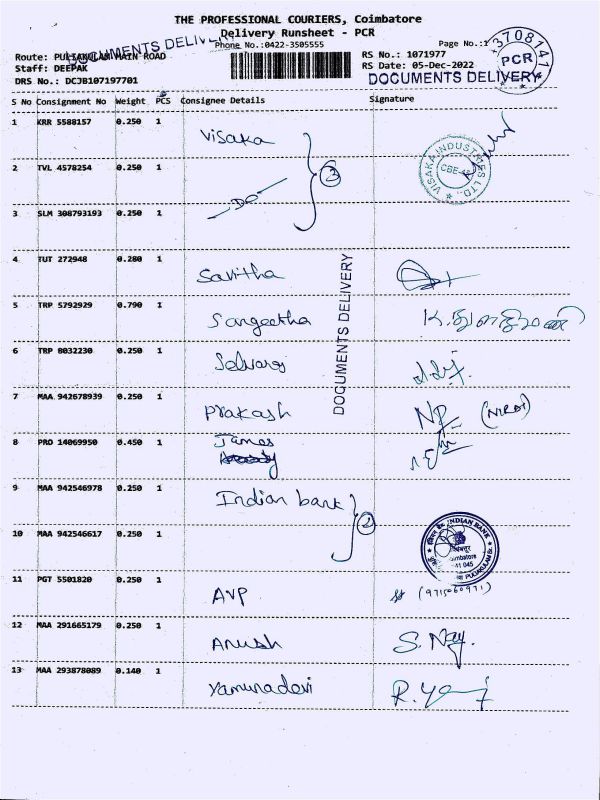 THE PROFESSIONAL COURIERS, Coimbatore
Delivery Runsheet - PCR
DOCUMENTS DELIVERY
Phone No.:0422-3505555
Page No.:1
Route: PULIAKULAM MAIN ROAD
RS No.: 1071977
Staff: DEEPAK
RS Date: 05-Dec-2022
DRS No.: DCJB107197701
DOCUMENTS DELIVERY
3708141
PCR
S No Consignment No Weight PCS Consignee Details Signature
1 KRR 5588157 0.250 1 Visaka
VISAKA INDUSTRIES LTD.,
CBE-45
2 TVL 4578254 0.250 1 -Do-
3
3 SLM 308793193 0.250 1
4 TUT 272948 0.280 1 Savitha
DOCUMENTS DELIVERY
5 TRP 5792929 0.790 1 Sangeetha
6 TRP 8032230 0.250 1 Selvaraj
7 MAA 942678939 0.250 1 Prakash NP
8 PRO 14069950 0.450 1 James
9 MAA 942546978 0.250 1 Indian bank
2
10 MAA 942546617 0.250 1
INDIAN BANK
Coimbatore
641 045
PULIAKULAM Br.
11 PGT 5501820 0.250 1 AVP (9715060971)
12 MAA 291665179 0.250 1 Anush
13 MAA 293878089 0.140 1 Yamunadevi